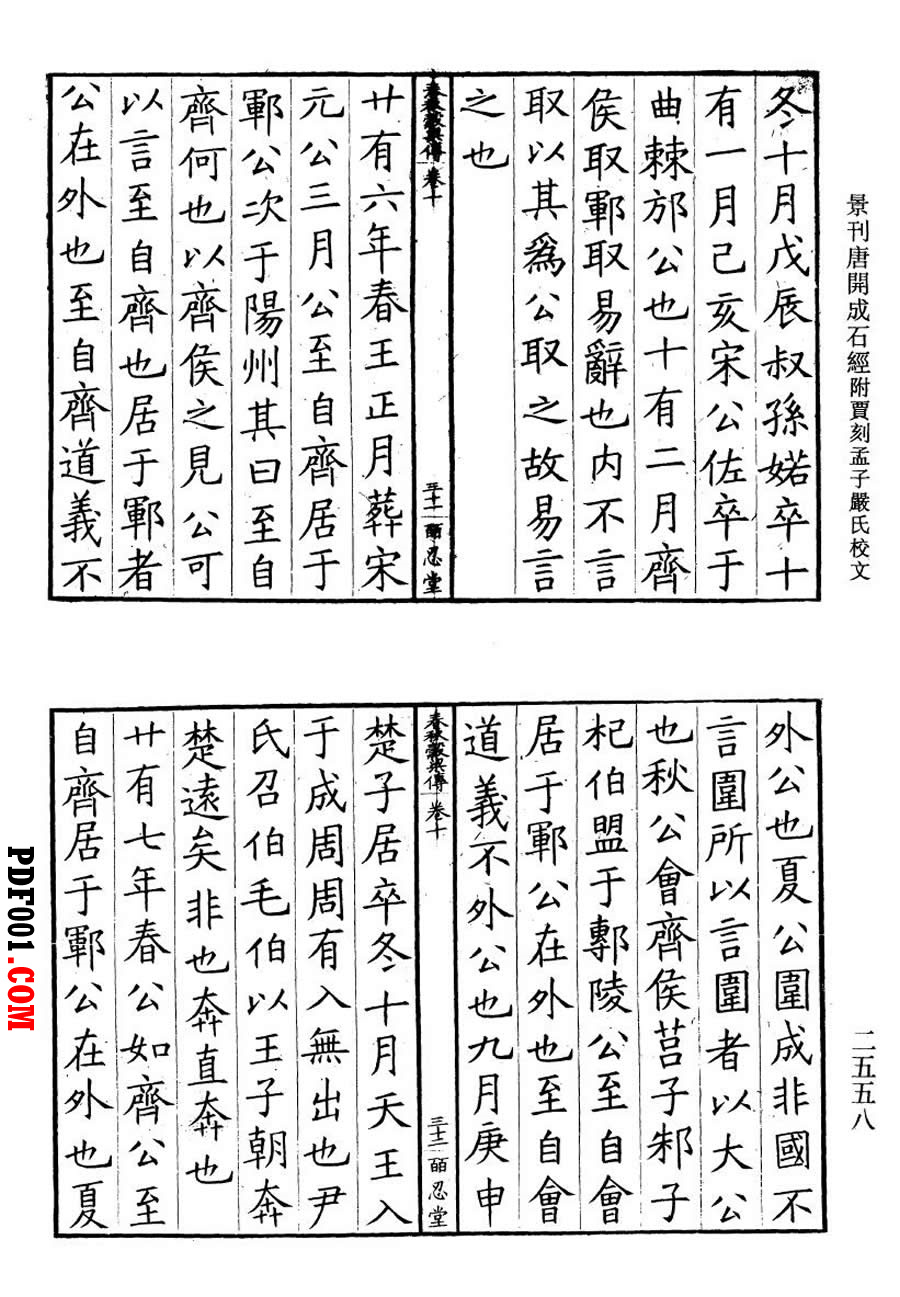 景刊唐開成石經附賈刻孟子嚴氏校文
冬十月戊辰叔孫婼卒十
有一月己亥宋公佐卒于
曲棘邡公也十有二月齊
侯取鄆取易辭也内不言
取以其爲公取之故易言
之也
春秋穀梁傳 卷十
三十一 皕忍堂
廿有六年春王正月葬宋
元公三月公至自齊居于
鄆公次于陽州其曰至自
齊何也以齊侯之見公可
以言至自齊也居于鄆者
公在外也至自齊道義不
外公也夏公圍成非國不
言圍所以言圍者以大公
也秋公會齊侯莒子邾子
杞伯盟于鄟陵公至自會
居于鄆公在外也至自會
道義不外公也九月庚申
春秋穀梁傳 卷十
三十二 皕忍堂
楚子居卒冬十月天王入
于成周周有入無出也尹
氏召伯毛伯以王子朝奔
楚遠矣非也奔直奔也
廿有七年春公如齊公至
自齊居于鄆公在外也夏
二五五八
PDF001.COM